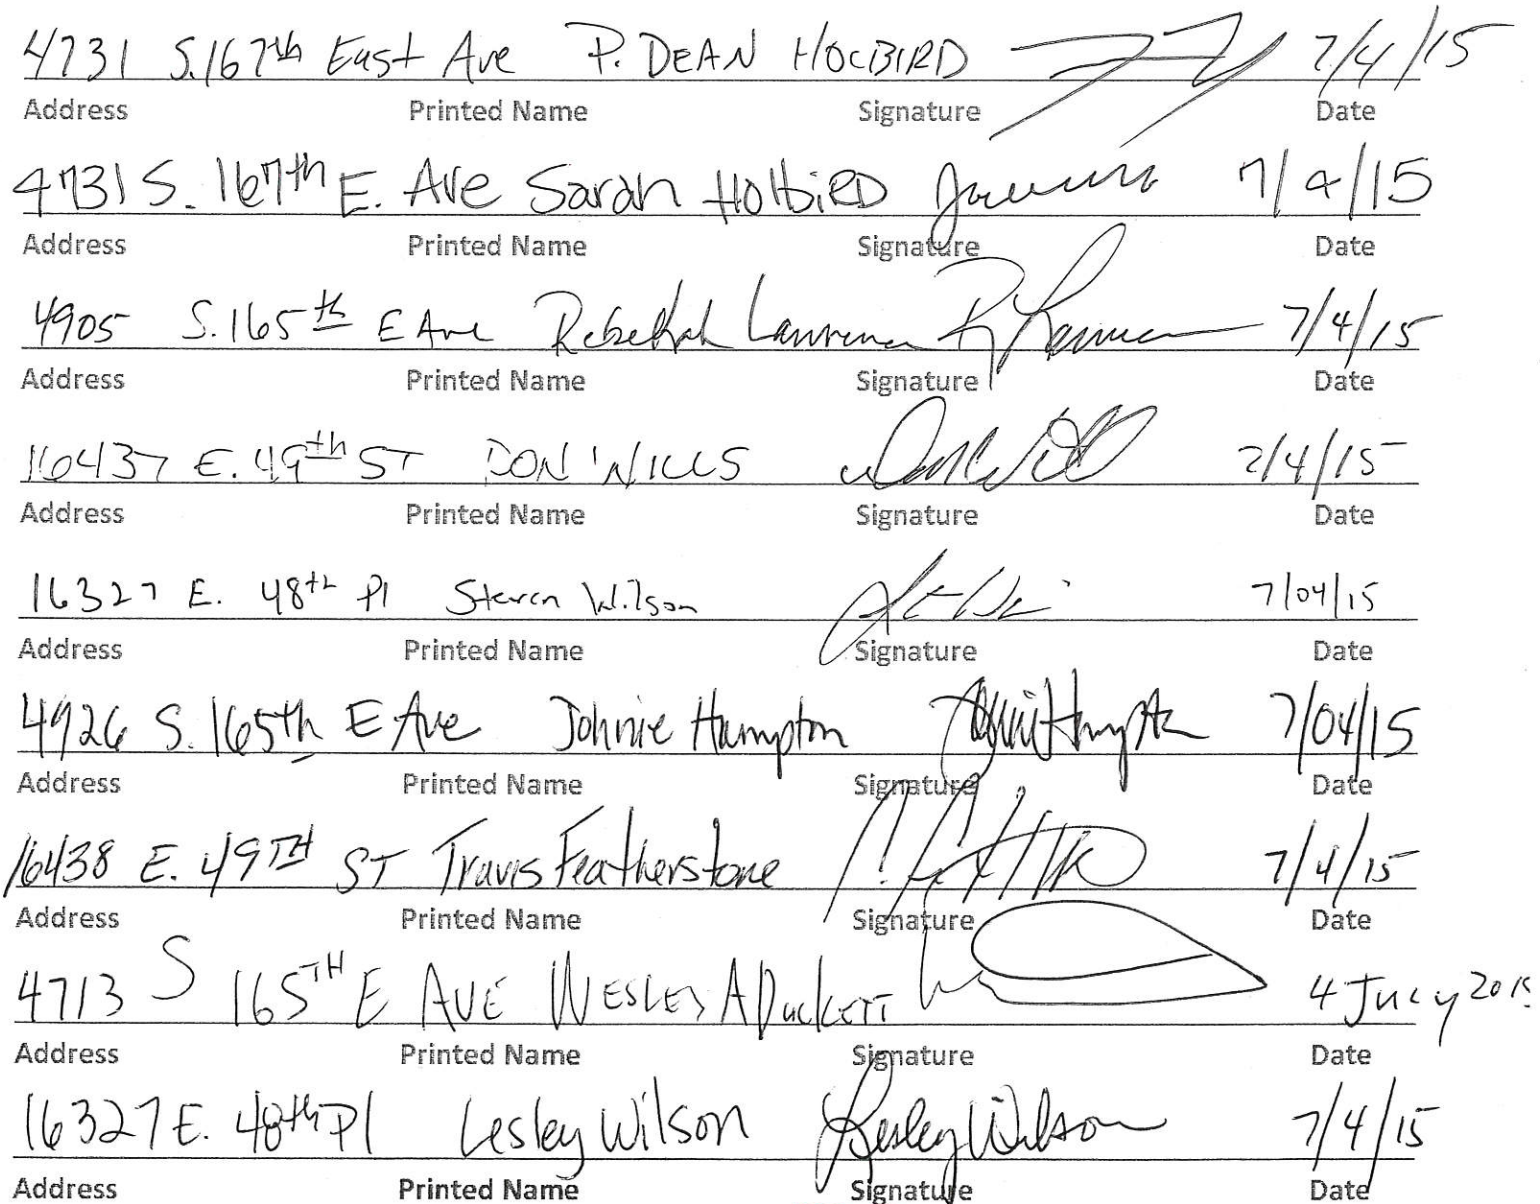 4731 S. 167th East Ave P. DEAN HOLBIRD 7/4/15
Address Printed Name Signature Date
4731 S. 167th E. Ave Sarah HolbiRD 7/4/15
Address Printed Name Signature Date
4905 S. 165th E Ave Rebekah Lawrence 7/4/15
Address Printed Name Signature Date
16437 E. 49th ST DON WILLS 7/4/15
Address Printed Name Signature Date
16327 E. 48th Pl Steven Wilson 7/04/15
Address Printed Name Signature Date
4926 S. 165th E Ave Johnie Hampton 7/04/15
Address Printed Name Signature Date
16438 E. 49TH ST Travis Featherstone 7/4/15
Address Printed Name Signature Date
4713 S 165TH E AVE WESLEY A DUCKETT 4 JULY 2015
Address Printed Name Signature Date
16327 E. 48th Pl Lesley Wilson Lesley Wilson 7/4/15
Address Printed Name Signature Date